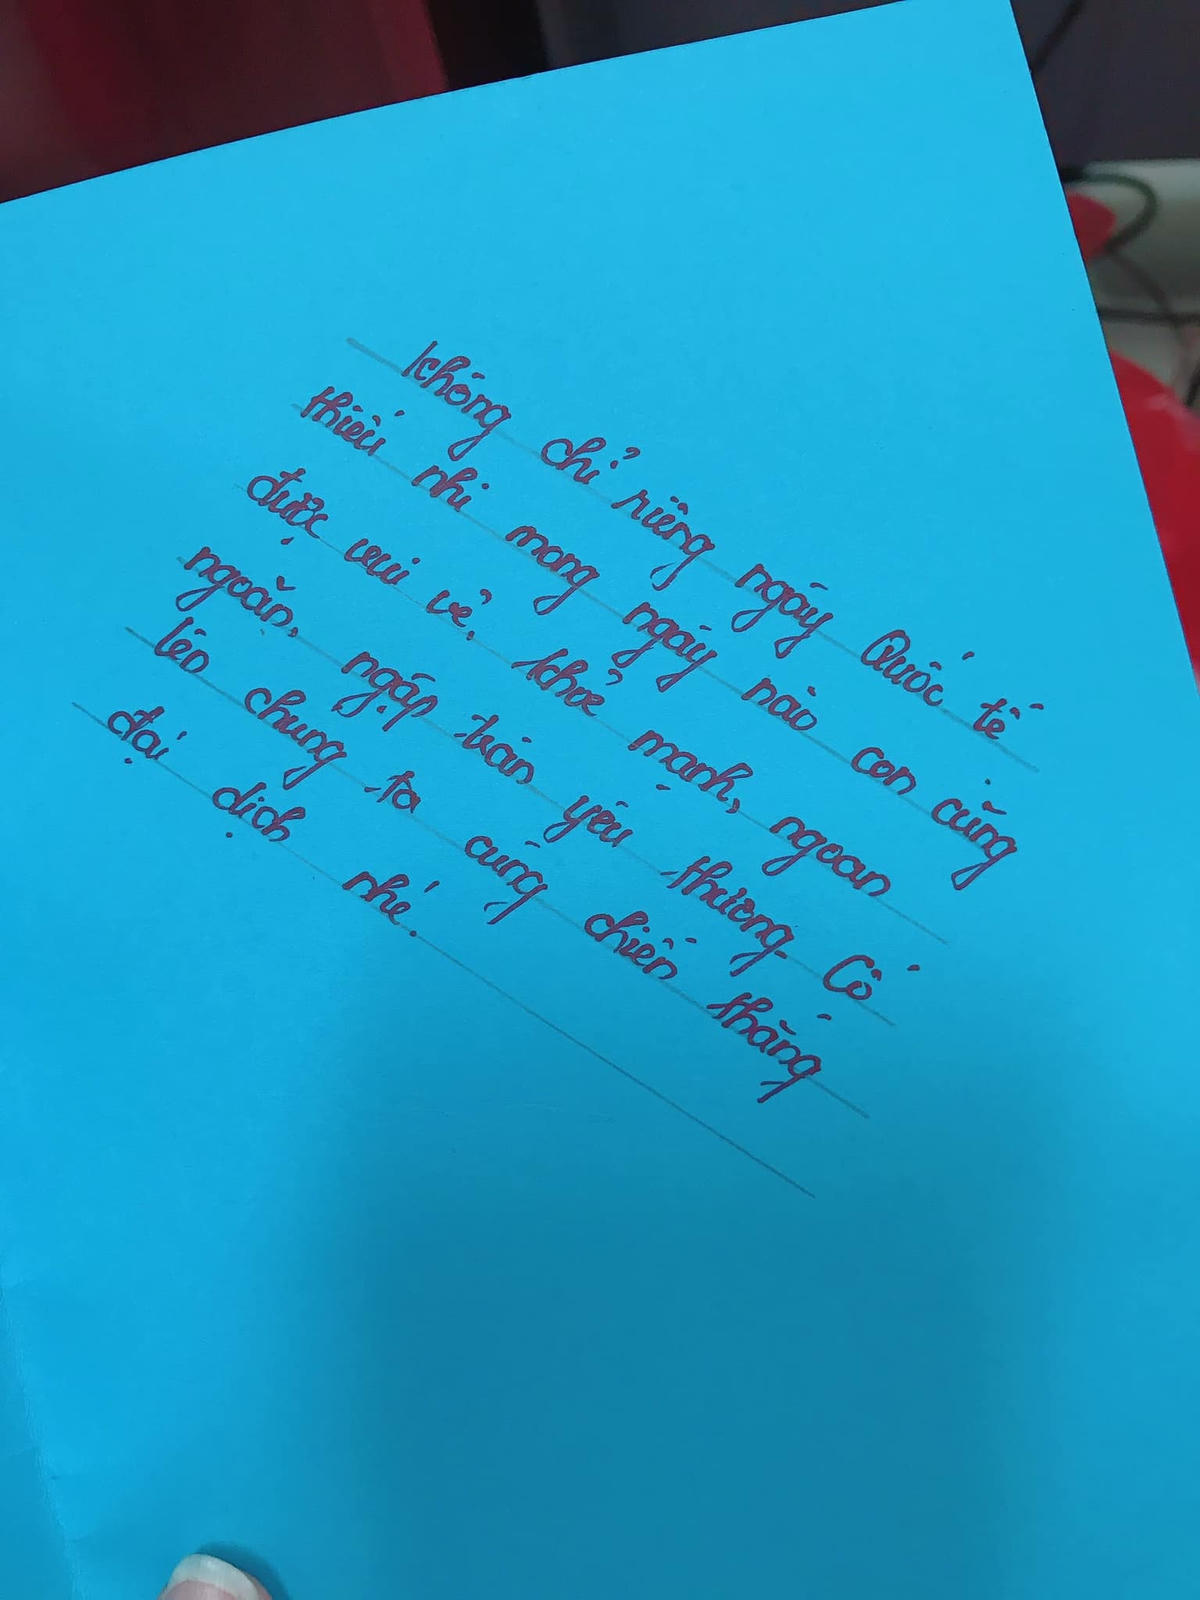 Không chỉ riêng ngày Quốc tế
thiếu nhi mong ngày nào con cũng
được vui vẻ, khoẻ mạnh, ngoan
ngoãn, ngập tràn yêu thương. Cố
lên chúng ta cùng chiến thắng
đại dịch nhé.